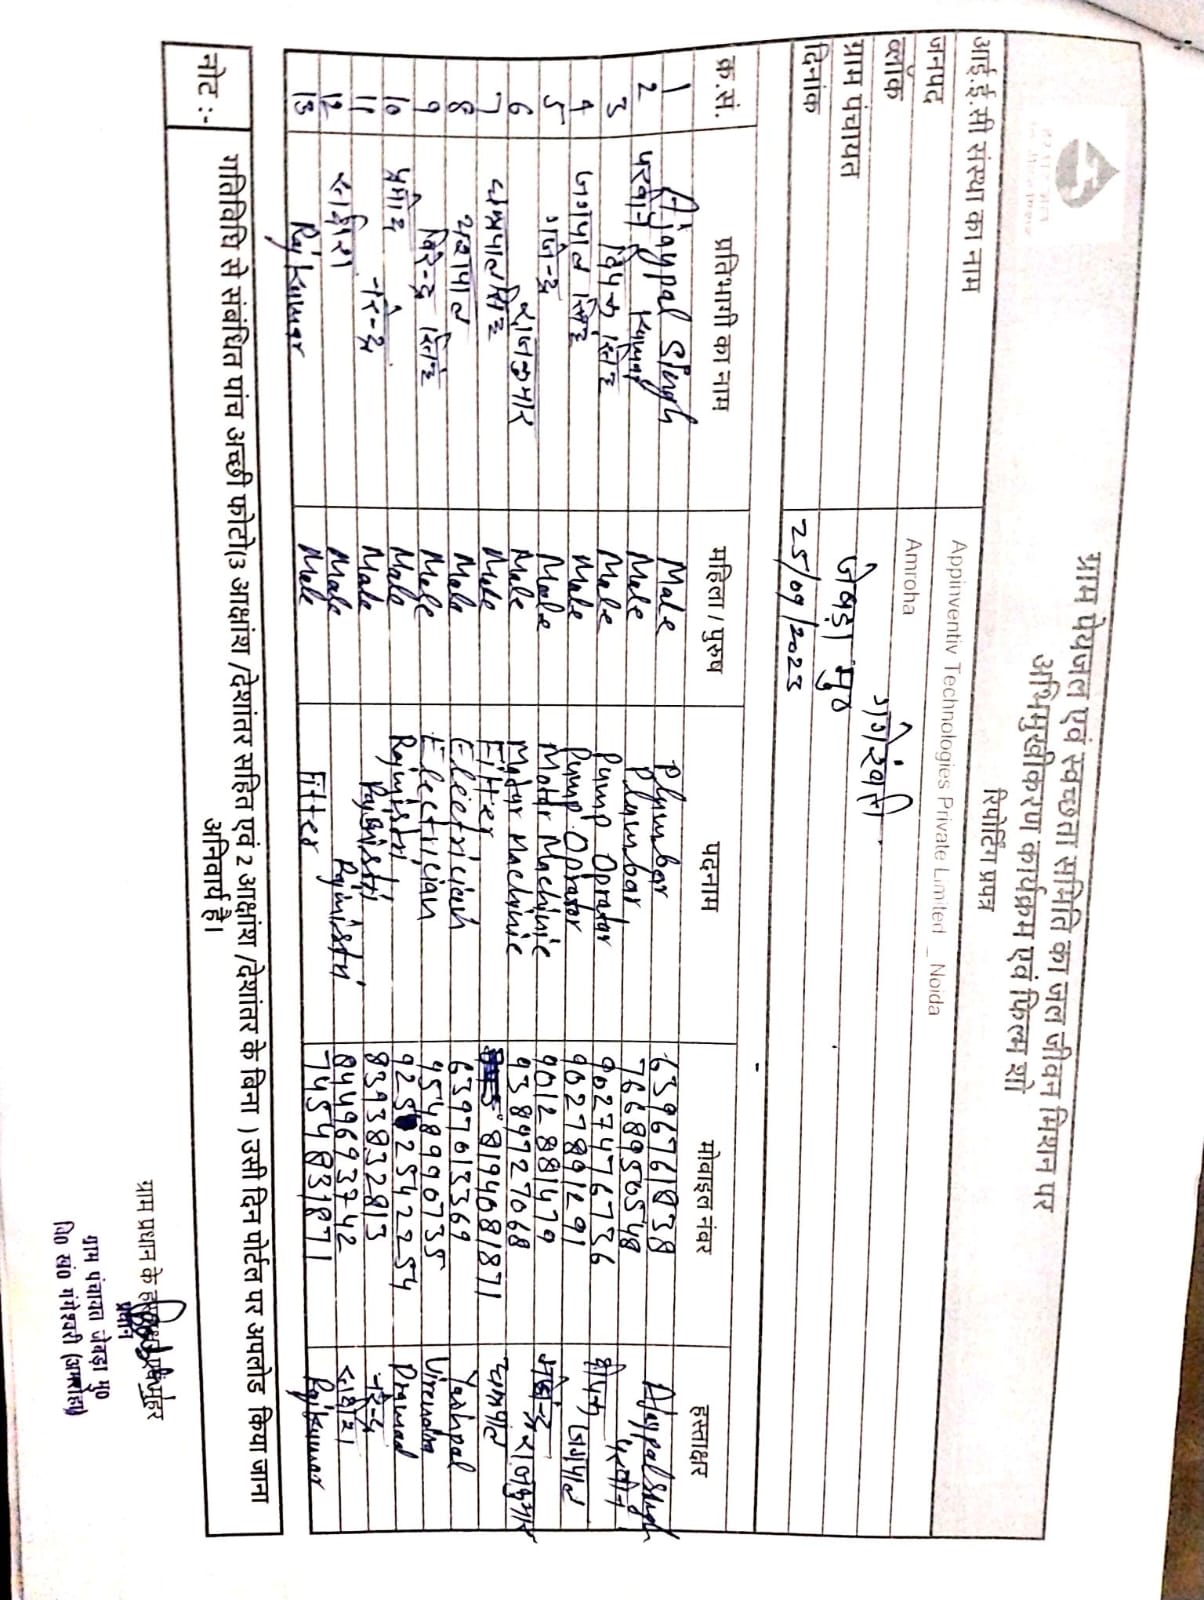 ग्राम पेयजल एवं स्वच्छता समिति का जल जीवन मिशन पर
अभिमुखीकरण कार्यक्रम एवं फिल्म शो
रिपोर्टिंग प्रपत्र
आई.ई.सी संस्था का नाम Appinventiv Technologies Private Limited _ Noida
जनपद Amroha
ब्लॉक गंगेश्वरी
ग्राम पंचायत जेबड़ा मु०
दिनांक 25/09/2023
क.सं. प्रतिभागी का नाम महिला / पुरुष पदनाम मोबाइल नंबर हस्ताक्षर
1 Ajaypal Singh Male Plumbar 6396761838 Ajaypal Singh
2 Kumar Male Plumbar 7668956548
3 सिंह Male Pump Oprator 9027476736
4 जगपाल सिंह Male Pump Oprator 9627891291 जगपाल
5 Male Motor Machinie 9012881479
6 राजकुमार Male Motor Machinie 9389927068 राजकुमार
7 धर्मपाल सिंह Male Fitter 8194081871 धर्मपाल
8 यशपाल Male Electriciash 6397613369 Yashpal
9 विरेन्द्र सिंह Male Electrician 9548990735 Virendra
10 प्रमोद Male Rajmistri 9252542254 Pramad
11 नरेन्द्र Male Rajmistri 8393832813 नरेन्द्र
12 Male Rajmistri 8449693742
13 Raj Kumar Male Fitter 7454831871 Rajkumar
नोट :- गतिविधि से संबंधित पांच अच्छी फोटो(3 आक्षांश /देशांतर सहित एवं 2 आक्षांश /देशांतर के बिना ) उसी दिन पोर्टल पर अपलोड किया जाना
अनिवार्य है।
ग्राम प्रधान के हस्ताक्षर एवं मुहर
प्रधान
ग्राम पंचायत जेबड़ा मु०
वि० खं० गंगेश्वरी (अमरोहा)